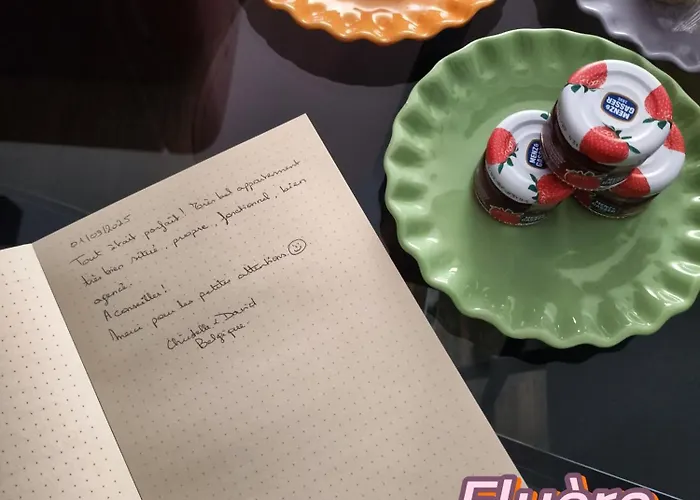 01/03/2025
Tout était parfait! Très bel appartement
très bien situé, propre, fonctionnel, bien
agencé.
A conseiller!
Merci pour les petites attentions.
Christelle & David
Belgique.
MENZ &
GASSER
MENZ &
GASSER